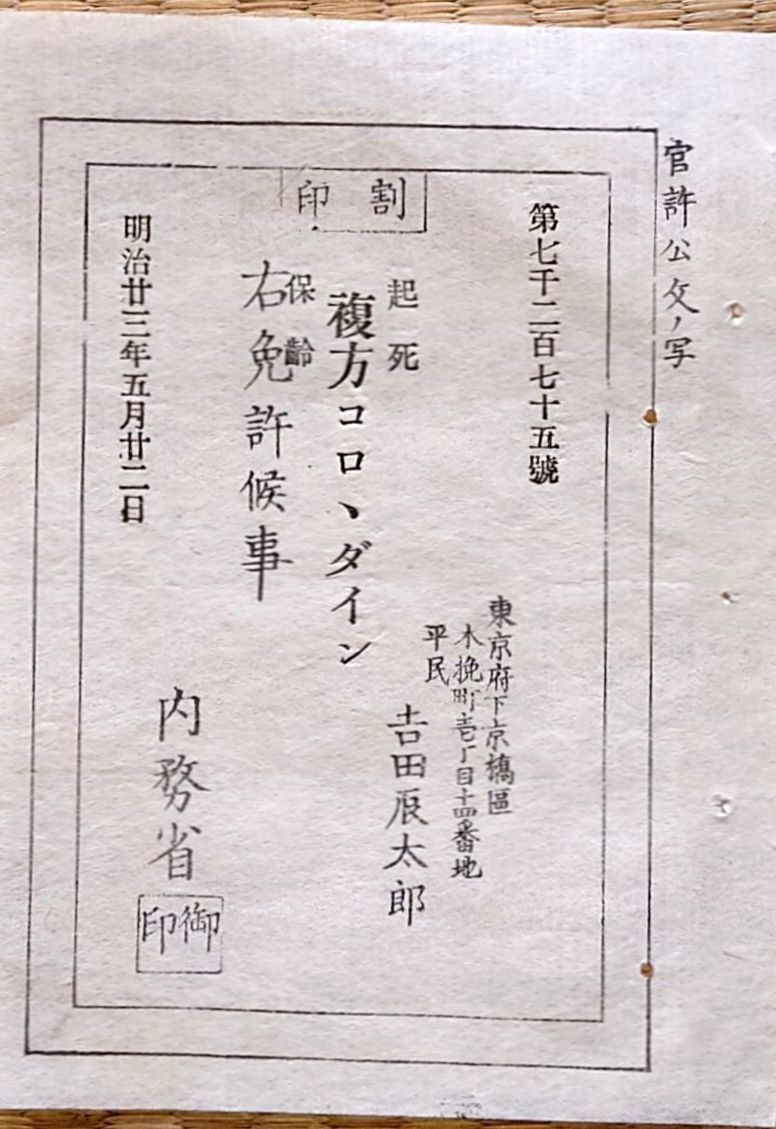 官許公文ノ写
割印
第七千二百七十五號
東京府下京橋區
木挽町壱丁目十四番地
平民
吉田辰太郎
起死
複方コロヽダイン
保齡
右免許候事
明治廿三年五月廿二日
内務省
御印